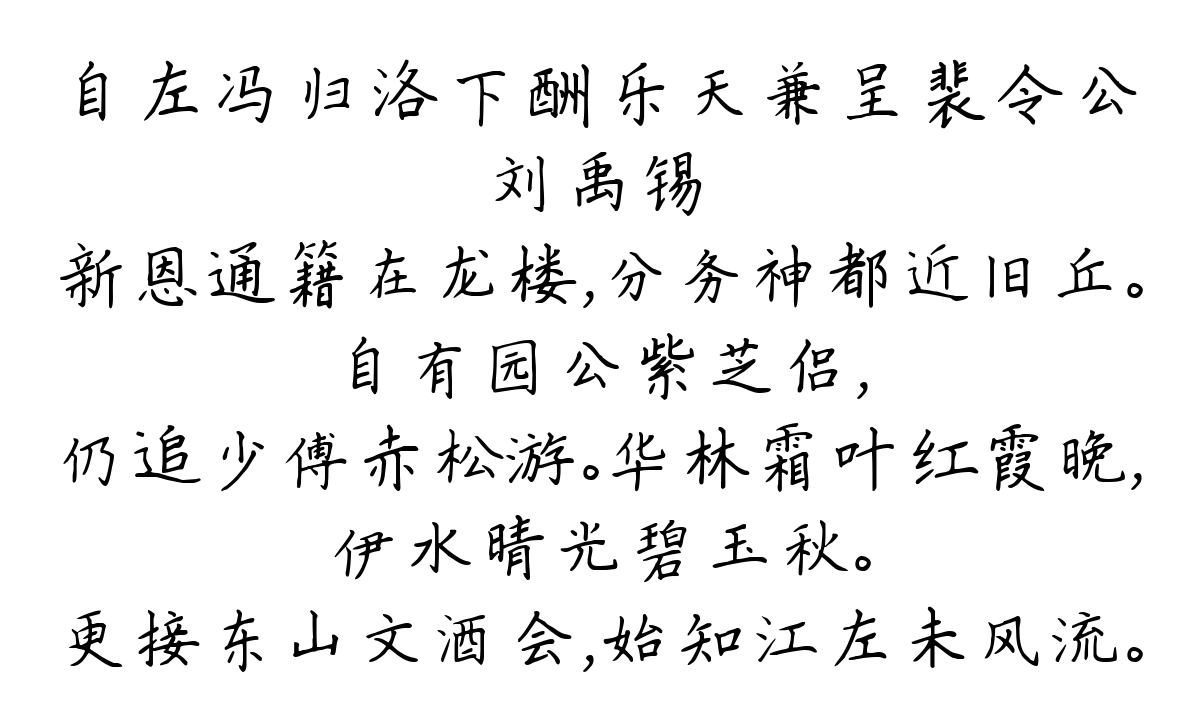 自左冯归洛下酬乐天兼呈裴令公
刘禹锡
新恩通籍在龙楼,分务神都近旧丘。
自有园公紫芝侣,
仍追少傅赤松游。华林霜叶红霞晚,
伊水晴光碧玉秋。
更接东山文酒会,始知江左未风流。